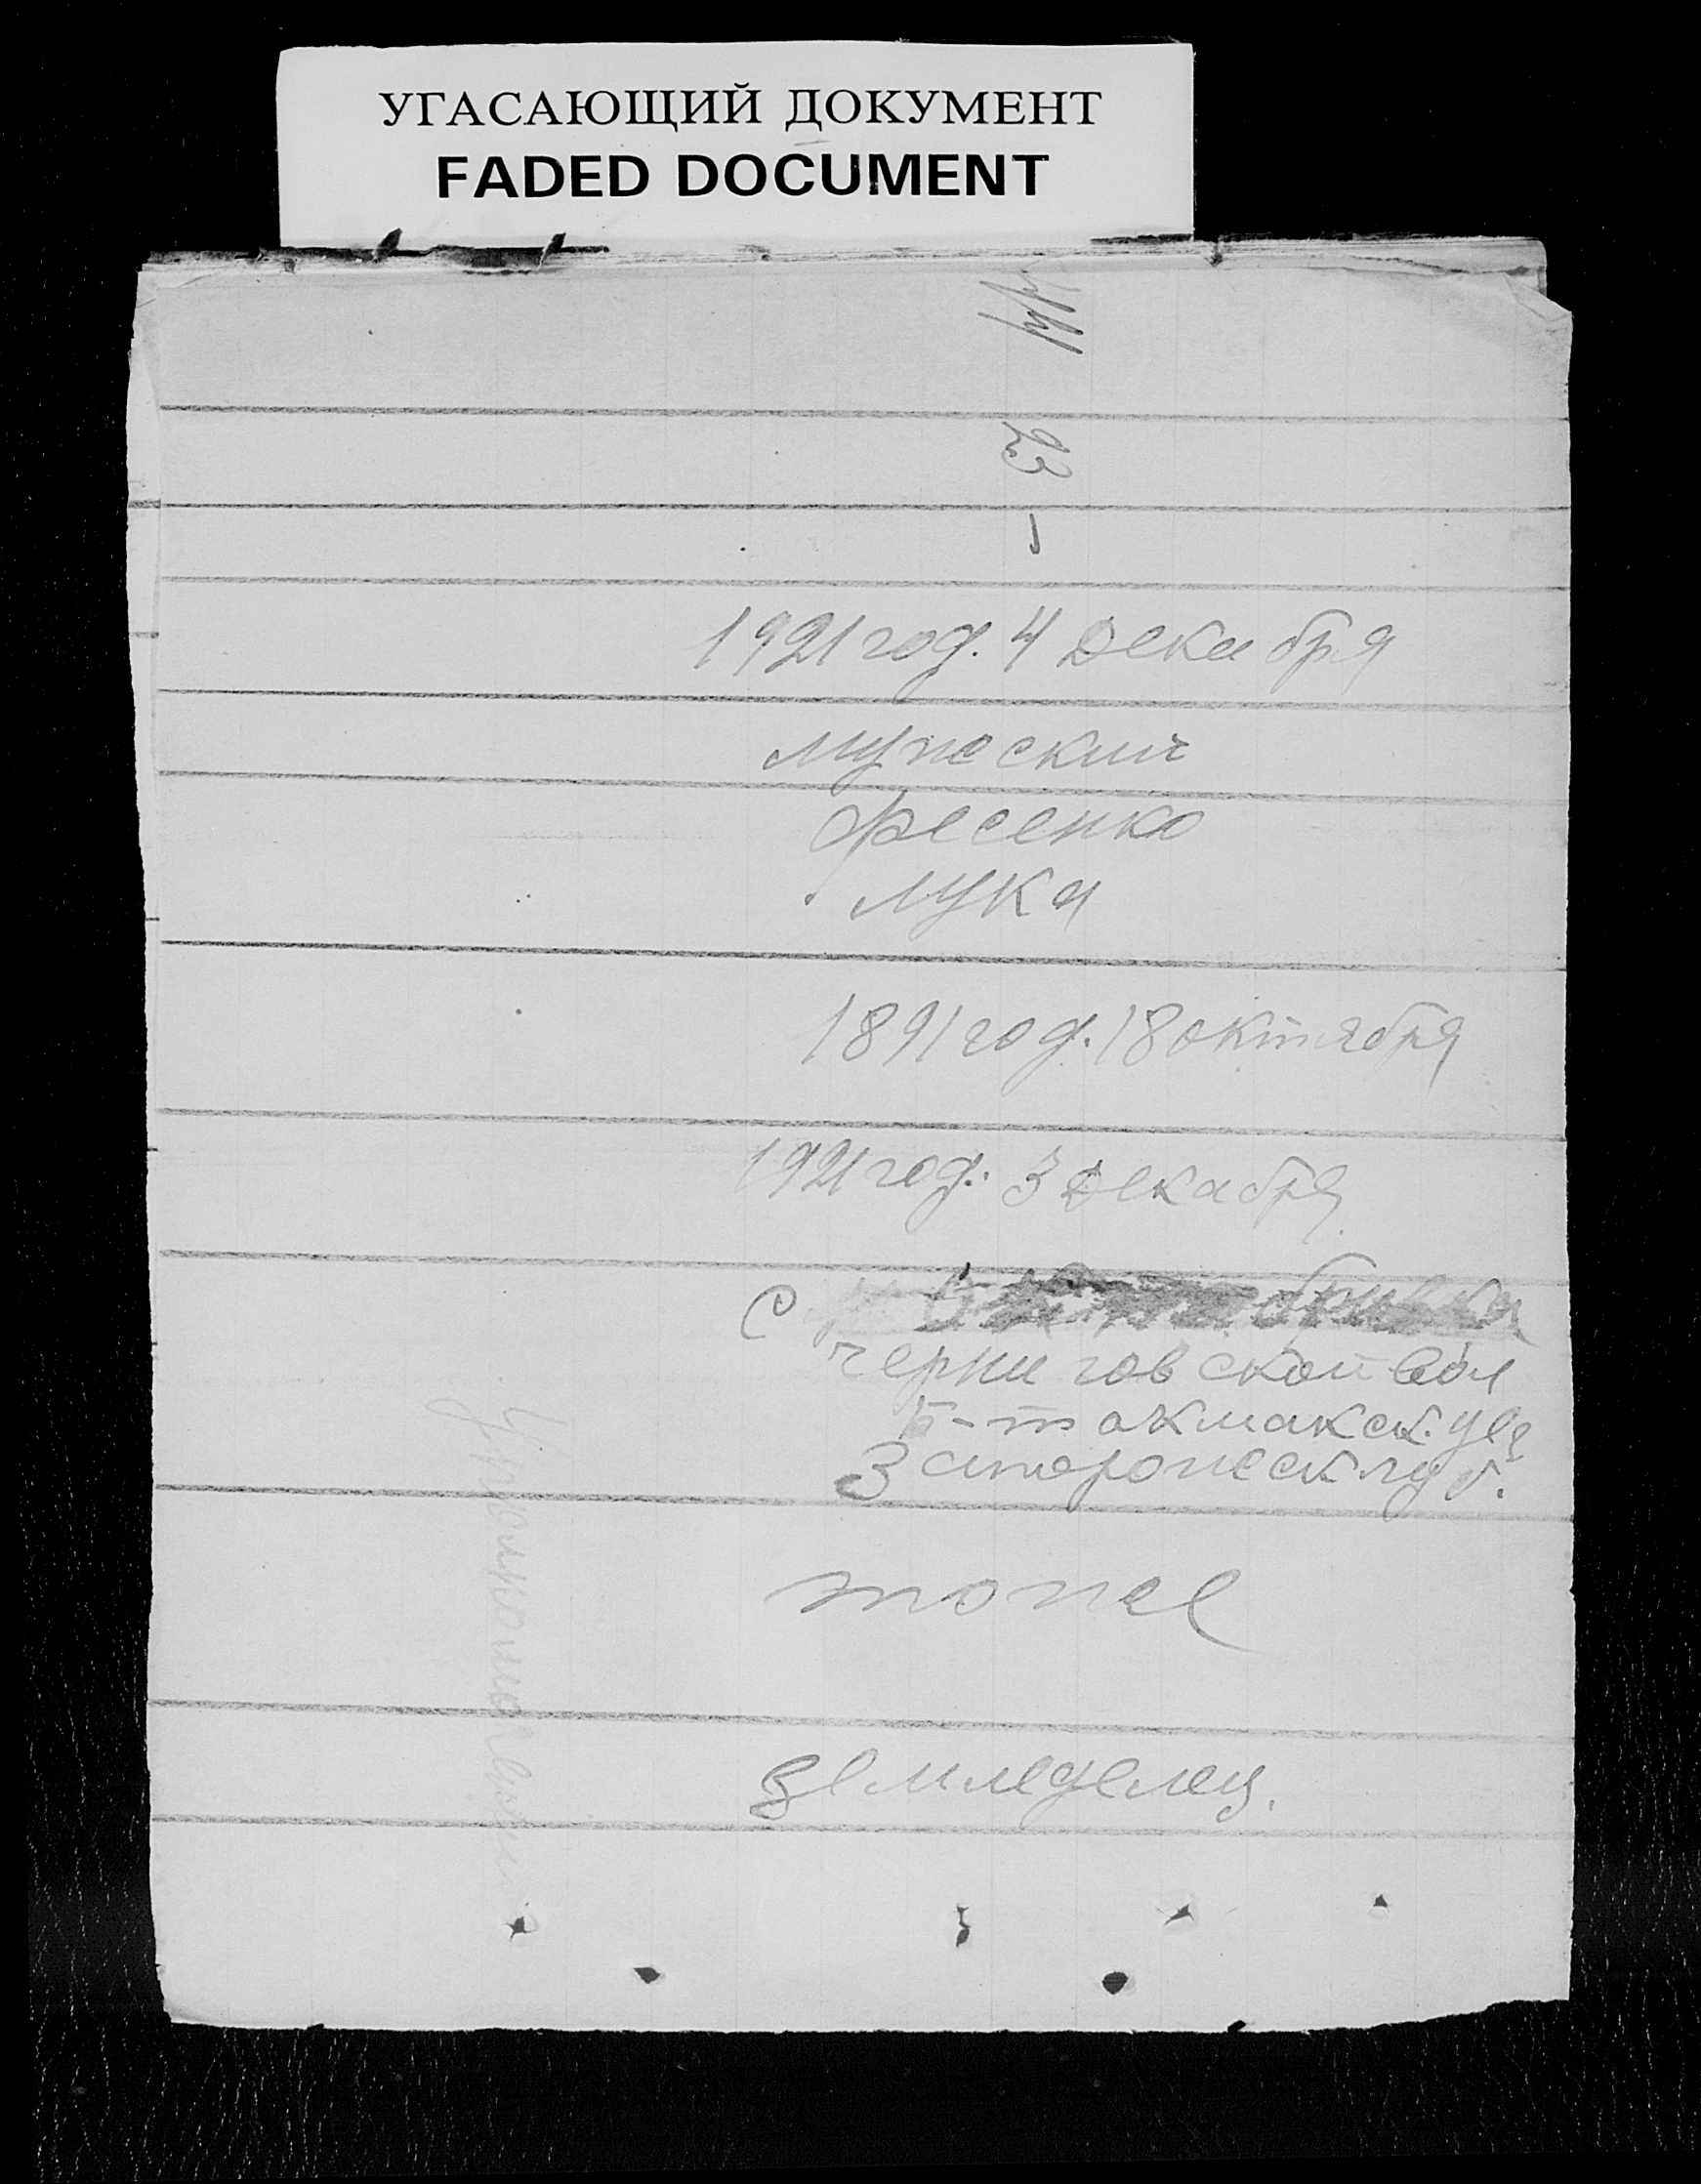 УГАСАЮЩИЙ ДОКУМЕНТ
FADED DOCUMENT
23
1921 год. 4 Декабря
мужеский
Фесенко
Лука
1891 год. 18 октября
1921 год. 3 Декабря
С
Черниговской вол
Б-токмакск. уез
Запорожеск губ.
тоже
Земледелец.